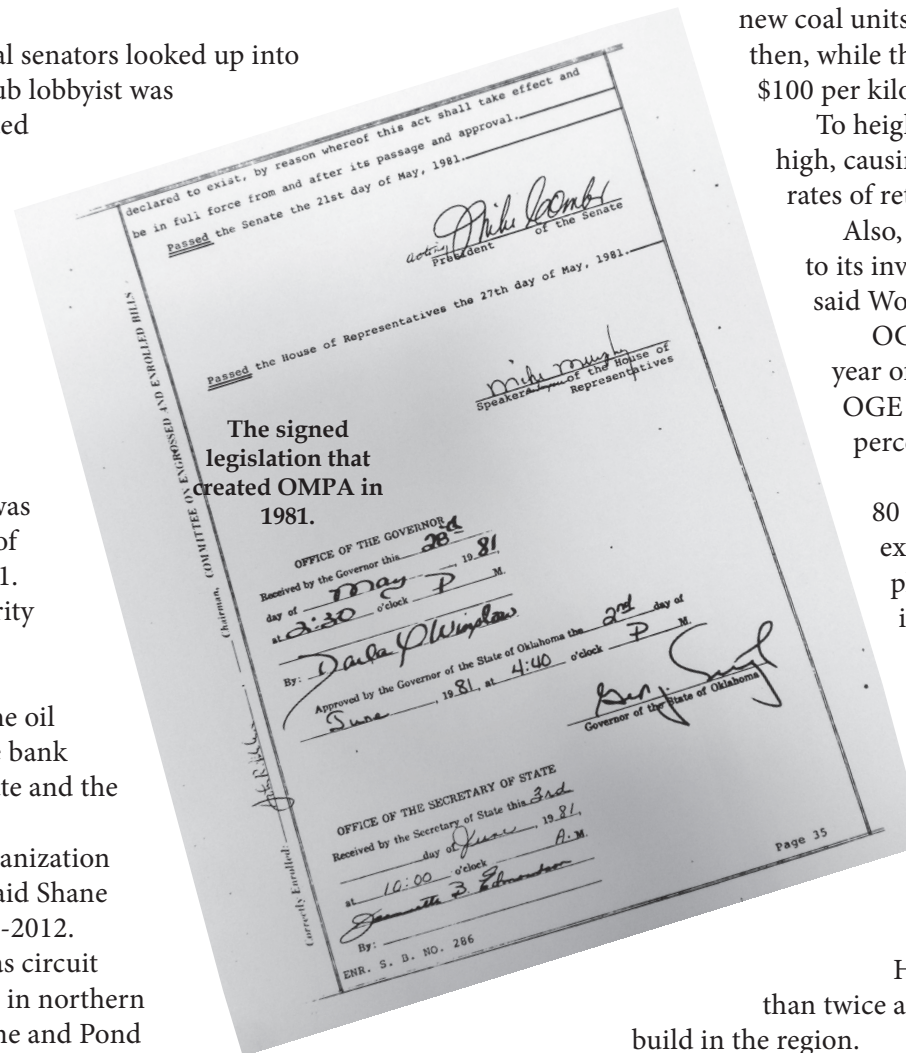 al senators looked up into
ub lobbyist was
ed
was
of
1.
rity
ne oil
e bank
ate and the
anization
aid Shane
-2012.
as circuit
in northern
ne and Pond
declared to exist, by reason whereof this act shall take effect and
be in full force from and after its passage and approval.
Passed the Senate the 21st day of May, 1981.
Acting Mike Combs
President of the Senate
Passed the House of Representatives the 27th day of May, 1981.
Mike Murphy
Speaker of the House of
Representatives
The signed
legislation that
created OMPA in
1981.
OFFICE OF THE GOVERNOR
Received by the Governor this 28th
day of May, 1981,
at 2:30 o'clock P M.
By: Darla Y Winslow
Approved by the Governor of the State of Oklahoma the 2nd day of
June, 1981, at 4:40 o'clock P M.
Governor of the State of Oklahoma
OFFICE OF THE SECRETARY OF STATE
Received by the Secretary of State this 3rd
day of June, 1981,
at 10:00 o'clock A.M.
Jeannette B. Edmondson
By:
ENR. S. B. NO. 286
Page 35
Correctly Enrolled: Chairman, COMMITTEE ON ENGROSSED AND ENROLLED BILLS
new coal units
then, while th
$100 per kilo
To heigh
high, causin
rates of ret
Also,
to its inv
said Wo
OG
year o
OGE
perce
80
ex
p
i
H
than twice a
build in the region.